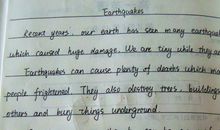 Earthquakes
Recent years, our earth has seen many earthquak
which caused huge damage. We are tiny while they are
Earthquakes can cause plenty of deaths which m
people frightened. They also destroy trees, buildings
others and bury things underground.